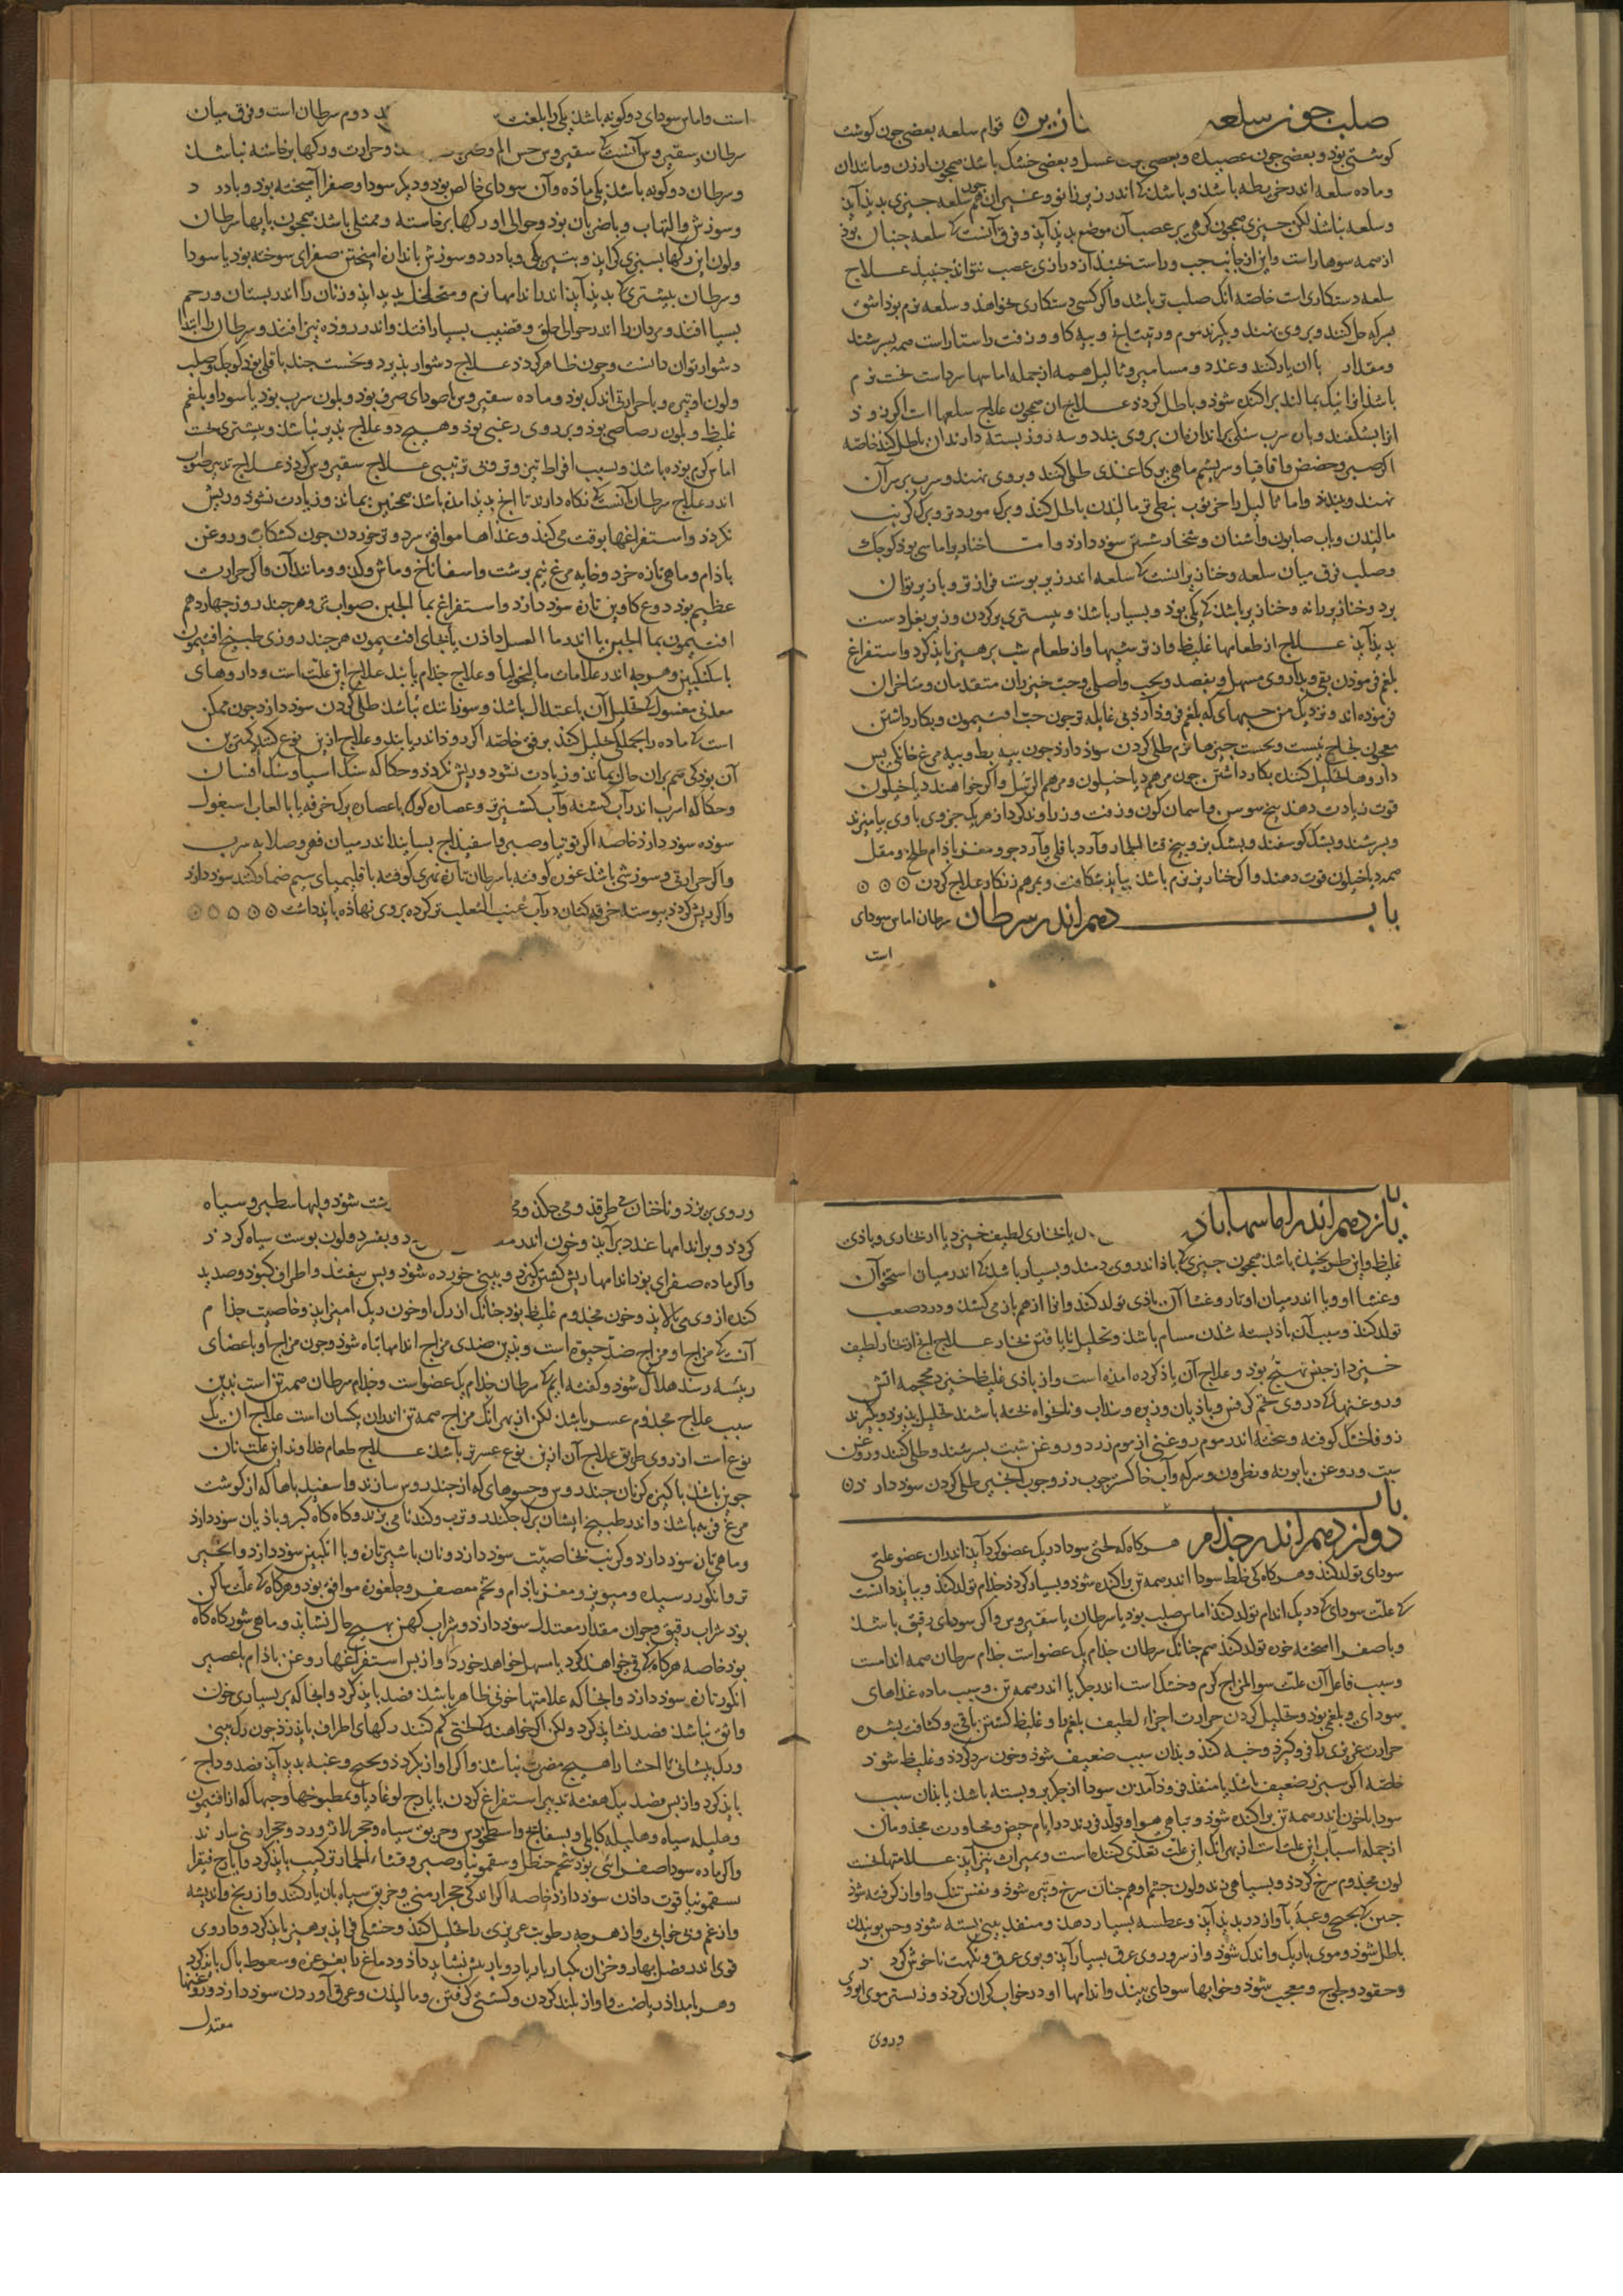 صلب چون سلعه نازیر قوام سلعه بعضی چون کوشت
کوشتی بود و بعضی چون عصیده و بعضی عسل و بعضی خشک باشد همچون ارزن و مانند آن
و ماده سلعه اندر خریطه باشد و باشد که اندر زیر زانو و غیر آن هم چون سلعه چیزی بدید آید
و سلعه نباشد لکن چیزی همچون کرهی بر عصب آن موضع بدید آید و فرق آنست که سلعه جنبان بود
از همه سوها راست و این از جانب چپ و راست جنبد از درازی عصب نتواند جنبید علاج
سلعه دستکاری است خاصه انک صلب تر باشد و اکر کسی دستکاری نخواهد و سلعه نرم بود اشق
بسرکه حل کنند و بروی نهند و بکیرند موم و راتینج و پیه کاو و زفت راستاراست همه بسرشند
و مقدار با آن یار کنند و غدد و مسامیر و ثالیل همه از جمله اماسها سردست سخت نرم
باشد انرا نیک بمالند پراکنده شود و باطل کردد علاج ان همچون علاج سلعها است اکر نرود
انرا بشکنند و بان سرب سنکی براندازه آن بروی بندد و سه روز بسته دارند آن باطل کند خاصه
اکر صبر و حضض و اقاقیا و سریشم ماهی بر کاغدی طلی کنند و بروی نهند و سرب بر سر آن
نهند و ببندند و اما ثالیل را خرنوب نبطی تر مالیدن باطل کند و برک مورد تر و برک کرنب
مالیدن و باب صابون و اشنان و شخار شستن سود دارد و اما خنازیر اماسی بود کوچک
و صلب فرق میان سلعه و خنازیر انست که سلعه اندر زیر پوست فراز تر و باز تر توان
برد و خنازیر را نه و خنازیر باشد که یکی بود و بسیار باشد و بیشتری بر کردن و زیر بغل دست
بدید آید علاج از طعامهای غلیظ و از تری شبها و از طعام شب پرهیز باید کرد و استفراغ
بلغم فرمودن بقی و بداروی مسهل و بفصد و بحب واصلی و حب خیزران متقدمان و متاخران
فرموده اند و نزدیک من حبهای که بلغم فرود آرد بی غایله تر چون حب افتیمون و بکار داشتن
معجون نجاح نیست و نخست چیزها نرم طلی کردن سود دارد چون پیه بط و پیه مرغ خانکی پس
داروها تحلیل کننده بکار داشتن چون مرهم دیاخیلون و مرهم الرسل و اکر خواهند دیاخیلون
قوت زیادت دهند بیخ سوسن آسمان کون و زفت و زراوند کرد از هر یک جزوی با وی بیامیزند
و بسرشند و پشک کوسفند و پشک بز و بیخ قثا الحمار و آرد باقلی و آرد جو و مغز باذام طلخ و مقل
همه دیاخیلون قوت دهند و اکر خنازیر نرم باشد بباید شکافت و بمرهم زنکار علاج کردن
باب دهم اندر سرطان سرطان اماس سودای
است
است و اماس سودای دو کونه باشد یکی را بلغت دوم سرطان است و فرق میان
سرطان و سقیروس آنست که سقیروس حس الم و ضربان و حرارت و رکها برخاسته نباشد
و سرطان دو کونه باشد یکی ماده و آن سودای خالص بود و دیکر سودا و صفرا آمیخته بود و با درد
و سوزش و التهاب و با ضربان بود و حوالی او رکها برخاسته و ممتلی باشد همچون پایها سرطان
و لون این رکها بسبزی کراید و بتیرکی و با درد و سوزش باندازه امیختن صفرای سوخته بود با سودا
و سرطان بیشتری که بدید آید اندر اندامها نرم و متخلخل بدید اید و زنان را اندر پستان و رحم
بسیار افتد و مردان را اندر حوالی حلق و قضیب بسیار افتد و اندر روده نیز افتد و سرطان را ابتدا
دشوار توان دانست و چون ظاهر کردد علاج دشوار پذیرد و نخست چند باقلی بود کوچک و صلب
و لون او تیره و با حرارتی اندک بود و ماده سقیروس یا سودای صرف بود و بلون سرب بود یا سودا و بلغم
غلیظ و بلون رصاصی بود و بر روی زغبی بود و هیچ دو علاج پذیر نباشد و بیشتری نخست
اماس کرم بوده باشد و بسبب افراط تبرید و فی ترتیبی علاج سقیروس کردد علاج تدبیر صواب
اندر علاج سرطان آنست که نکاه دارند تا انج بدید امده باشد همچنین بماند و زیادت نشود و ریش
نکردد و استفراغها بوقت می کند و غذاها موافق سرد و تر خوردن چون کشکاب و روغن
باذام و ماهی تازه خرد و خایه مرغ نیم برشت و اسفاناخ و ماش و کدو و مانند آن و اکر حرارت
عظیم بود دوغ کاوین تازه سود دارد و استفراغ بما الجبن صواب تر و هر چند روز چهار درهم
افتیمون بما الجبن یا اندر ما العسل دادن یا بجای افتیمون هر چند روزی طبیخ افتیمون
با سکنکبین و هرچه اندر علامات مالیخولیا و علاج جذام یابند علاج این علت است و داروهای
معدنی مغسول که تحلیل آن باعتدال باشد و سوزاننده نباشد طلی کردن سود دارد چون ممکن
است که ماده را بجملکی تحلیل کند برفق خاصه اکر دروذاندر یابند و علاج از این نوع کنند کمترین
آن بود که هم بران حال بماند و زیادت نشود و ریش نکردد و حکاکه سنک اسیا و سنک افسان
و حکاکه اسرب اندر آب کشنه و آب کشنیز تر و عصاره کوک با عصاره برک خرفه یا بالعاب اسبغول
سوده سود دارد خاصه اکر توتیا و صبر و اسفیداج بسایند اندر میان فهر و صلایه سرب
و اکر حرارتی و سوزشی باشد غوره کوفته با سرطان تازه نهری کوفته با قلیمیای سیم ضماد کنند سود دارد
و اکر ریش کردد پیوسته خرقه کتان در آب عنب الثعلب تر کرده بروی نهاده باید داشت
باب
یازدهم اندر اماسهاء باد یا بخاری لطیف خیزد یا از بخاری و بادی
غلیظ و این طریختن باشد همچون چیزی که باد اندر وی دمند و بسیار باشد که اندر میان استخوان
و غشا او و یا اندر میان اوتار و غشا آن بادی تولد کند و انرا از هم باز می کشد و درد صعب
تولد کند و سبب آن باز بسته شدن مسام باشد و تحلیل نایافتن بخار علاج انج از بخار لطیف
خیزد از جنس تهبج بود و علاج آن یاد کرده امده است و از بادی غلیظ خیزد محجمه اتش
و روغنها که در وی تخم کرفس و باذیان و زیره و سذاب و نانخواه پخته باشند تحلیل پذیرد و بکیرند
زوفا خشک کوفته و بیخته اندر موم روغنی از موم زرد و روغن شبت بسرشند و طلی کنند و روغن
شبت و روغن بابونه و نطرون و سرکه و آب خاکستر چوب رز و چوب انجیر طلی کردن سود دارد
باب
دوازدهم اندر جذام هرکاه که لختی سودا در یک عضو کرد آید اندر آن عضو علتی
سودای تولد کند و هرکاه که خلط سودا اندر همه تن پراکنده شود و بسیار کردد جذام تولد کند و بباید دانست
که علت سودای که در یک اندام تولد کند اماس صلب بود یا سرطان یا سقیروس و اکر سودای رقیق باشد
و با صفرا امیخته خوره تولد کند همچنانک سرطان جذام یک عضو است جذام سرطان همه اندامست
و سبب فاعل آن علت سوالمزاج کرم و خشک است اندر جکر یا اندر همه تن و سبب ماده غذاهای
سودای و بلغمی بود و تحلیل کردن حرارت اجزاء لطیف بلغم را و غلیظ کشتن باقی و کثافت بشره
حرارت غریزی را فرو کیرد و خبه کند و بدان سبب ضعیف شود و خون سرد کردد و غلیظ شود
خاصه اکر سپرز ضعیف باشد یا منفذ فرود آمدن سودا از جکر برو بسته باشد یا بدان سبب
سودا با خون اندر همه تن پراکنده شود و تباهی هوا و تولد فرزند در ایام حیض و مجاورت مجذومان
از جمله اسباب این علت است از بهر انک این علت تعدی کننده است و بمیراث نیز آید علامتها نخست
لون مجذوم سرخ کردد و بسیاهی زند و لون چشم او هم چنان سرخ و تیره شود و نفس تنک و اواز کرفته شود
چنین که بحح و غبه آواز در بدید آید و عطسه بسیار دهد و منفذ بینی بسته شود و حس بوئیدن
باطل شود و موی باریک و اندک شود و از سر و روی عرق بسیار آید و بوی عرق و نکهت ناخوش کردد
و حقود و لجوج و معجب شود و خوابها سودای بیند و اندامها او در خواب کران کردد و ز بستر موی ابروی
و روی
و روی بریزد و ناخنان می طرقد و می چکد شود و لبها سطبر و سیاه
کردد و بر اندامها غدد برآید و خون اندر و بفسرد و لون پوست سیاه کردد
و اکر ماده صفرای بود اندامها ریش کشتن کیرد و بینی خورده شود و پس بیفتد و اطراف کبود و صدید
کنده از وی می پالاید و خون مجذوم غلیظ بود چنانک از رک او خون ریک امیز اید و خاصیت جذام
آنست که مزاج او مزاج ضد حیوة است و بدین ضدی مزاج اندامها تباه شود و چون مزاج او باعضای
رئیسه رسد هلاک شود و کفته ایم که سرطان جذام یک عضو است و جذام سرطان همه تن است بدین
سبب علاج مجذوم عسر باشد لکن از بهر انک مزاج همه تن اندر آن یکسان است علاج ان یک
نوع است از روی طریق علاج آن از این نوع عسرتر باشد علاج طعام خداوند این علت نان
جوین باشد پاکیزه کر نان جندروس و حسوهای که از جندروس سازند و اسفیدباها که از کوشت
مرغ فربه باشد و اندر طبیخ ایشان برک چکندر و ترب و کندنا می پزند و کاه کاه کبر و باذیان سود دارد
و ماهی تازه سود دارد و کرنب بخاصیت سود دارد و نان با شیر تازه و با انکبین سود دارد و انجیر
تر و انکور رسیده و میویز و مغز باذام و تخم معصفر و چلغوزه موافق بود و هرکاه که علت ساکن
بود شراب رقیق و جوان مقدار معتدل سود دارد و شراب کهن بهیچ حال نشاید و ماهی شور کاه کاه
بود خاصه هرکاه که قی خواهد کرد یا مسهل خواهد خورد و از پس استفراغها روغن باذام با عصیر
انکور تازه سود دارد و انجا که علامتها خونی ظاهر باشد فصد باید کرد و انجا که بر بسیاری خون
واثق نباشد فصد نشاید کرد ولکن اکر خواهند که لختی کم کنند رکهای اطراف باید زد چون رک بینی
و رک پیشانی تا احشا را هیچ مضرت نباشد و اکر اواز بکردد و بحح و غبه بدید آید فصد وداج
باید کرد و از پس فصد بیک هفته تدبیر استفراغ کردن بایارج لوغاذیا و بمطبوخها و حبها که از افتیمون
و هلیله سیاه و هلیله کابلی و بسفایج و اسطوخودس و خربق سیاه و حجر لازورد و حجر ارمنی سازند
و اکر ماده سودا صفرائی بود شحم حنظل و سقمونیا و صبر و قثاء الحمار ترکیب باید کرد و ایارج فیقرا
بسقمونیا قوت دادن سود دارد خاصه اکر اندکی حجر ارمنی و خربق سیاه بان یار کنند و از رنج و اندیشه
و از غم و بی خوابی و از هرچه رطوبت غریزی را تحلیل کند و خشکی فزاید پرهیز باید کرد و داروی
قوی اندر فصل بهار و خزان یکبار یا دوبار بیش نشاید داد و دماغ را بغرغره و سعوط پاک باید کرد
و هر بامداذ ریاضت و اواز بلند کردن و کشتی کرفتن و مالیدن و عرق آوردن سود دارد و روغنها
معتدل